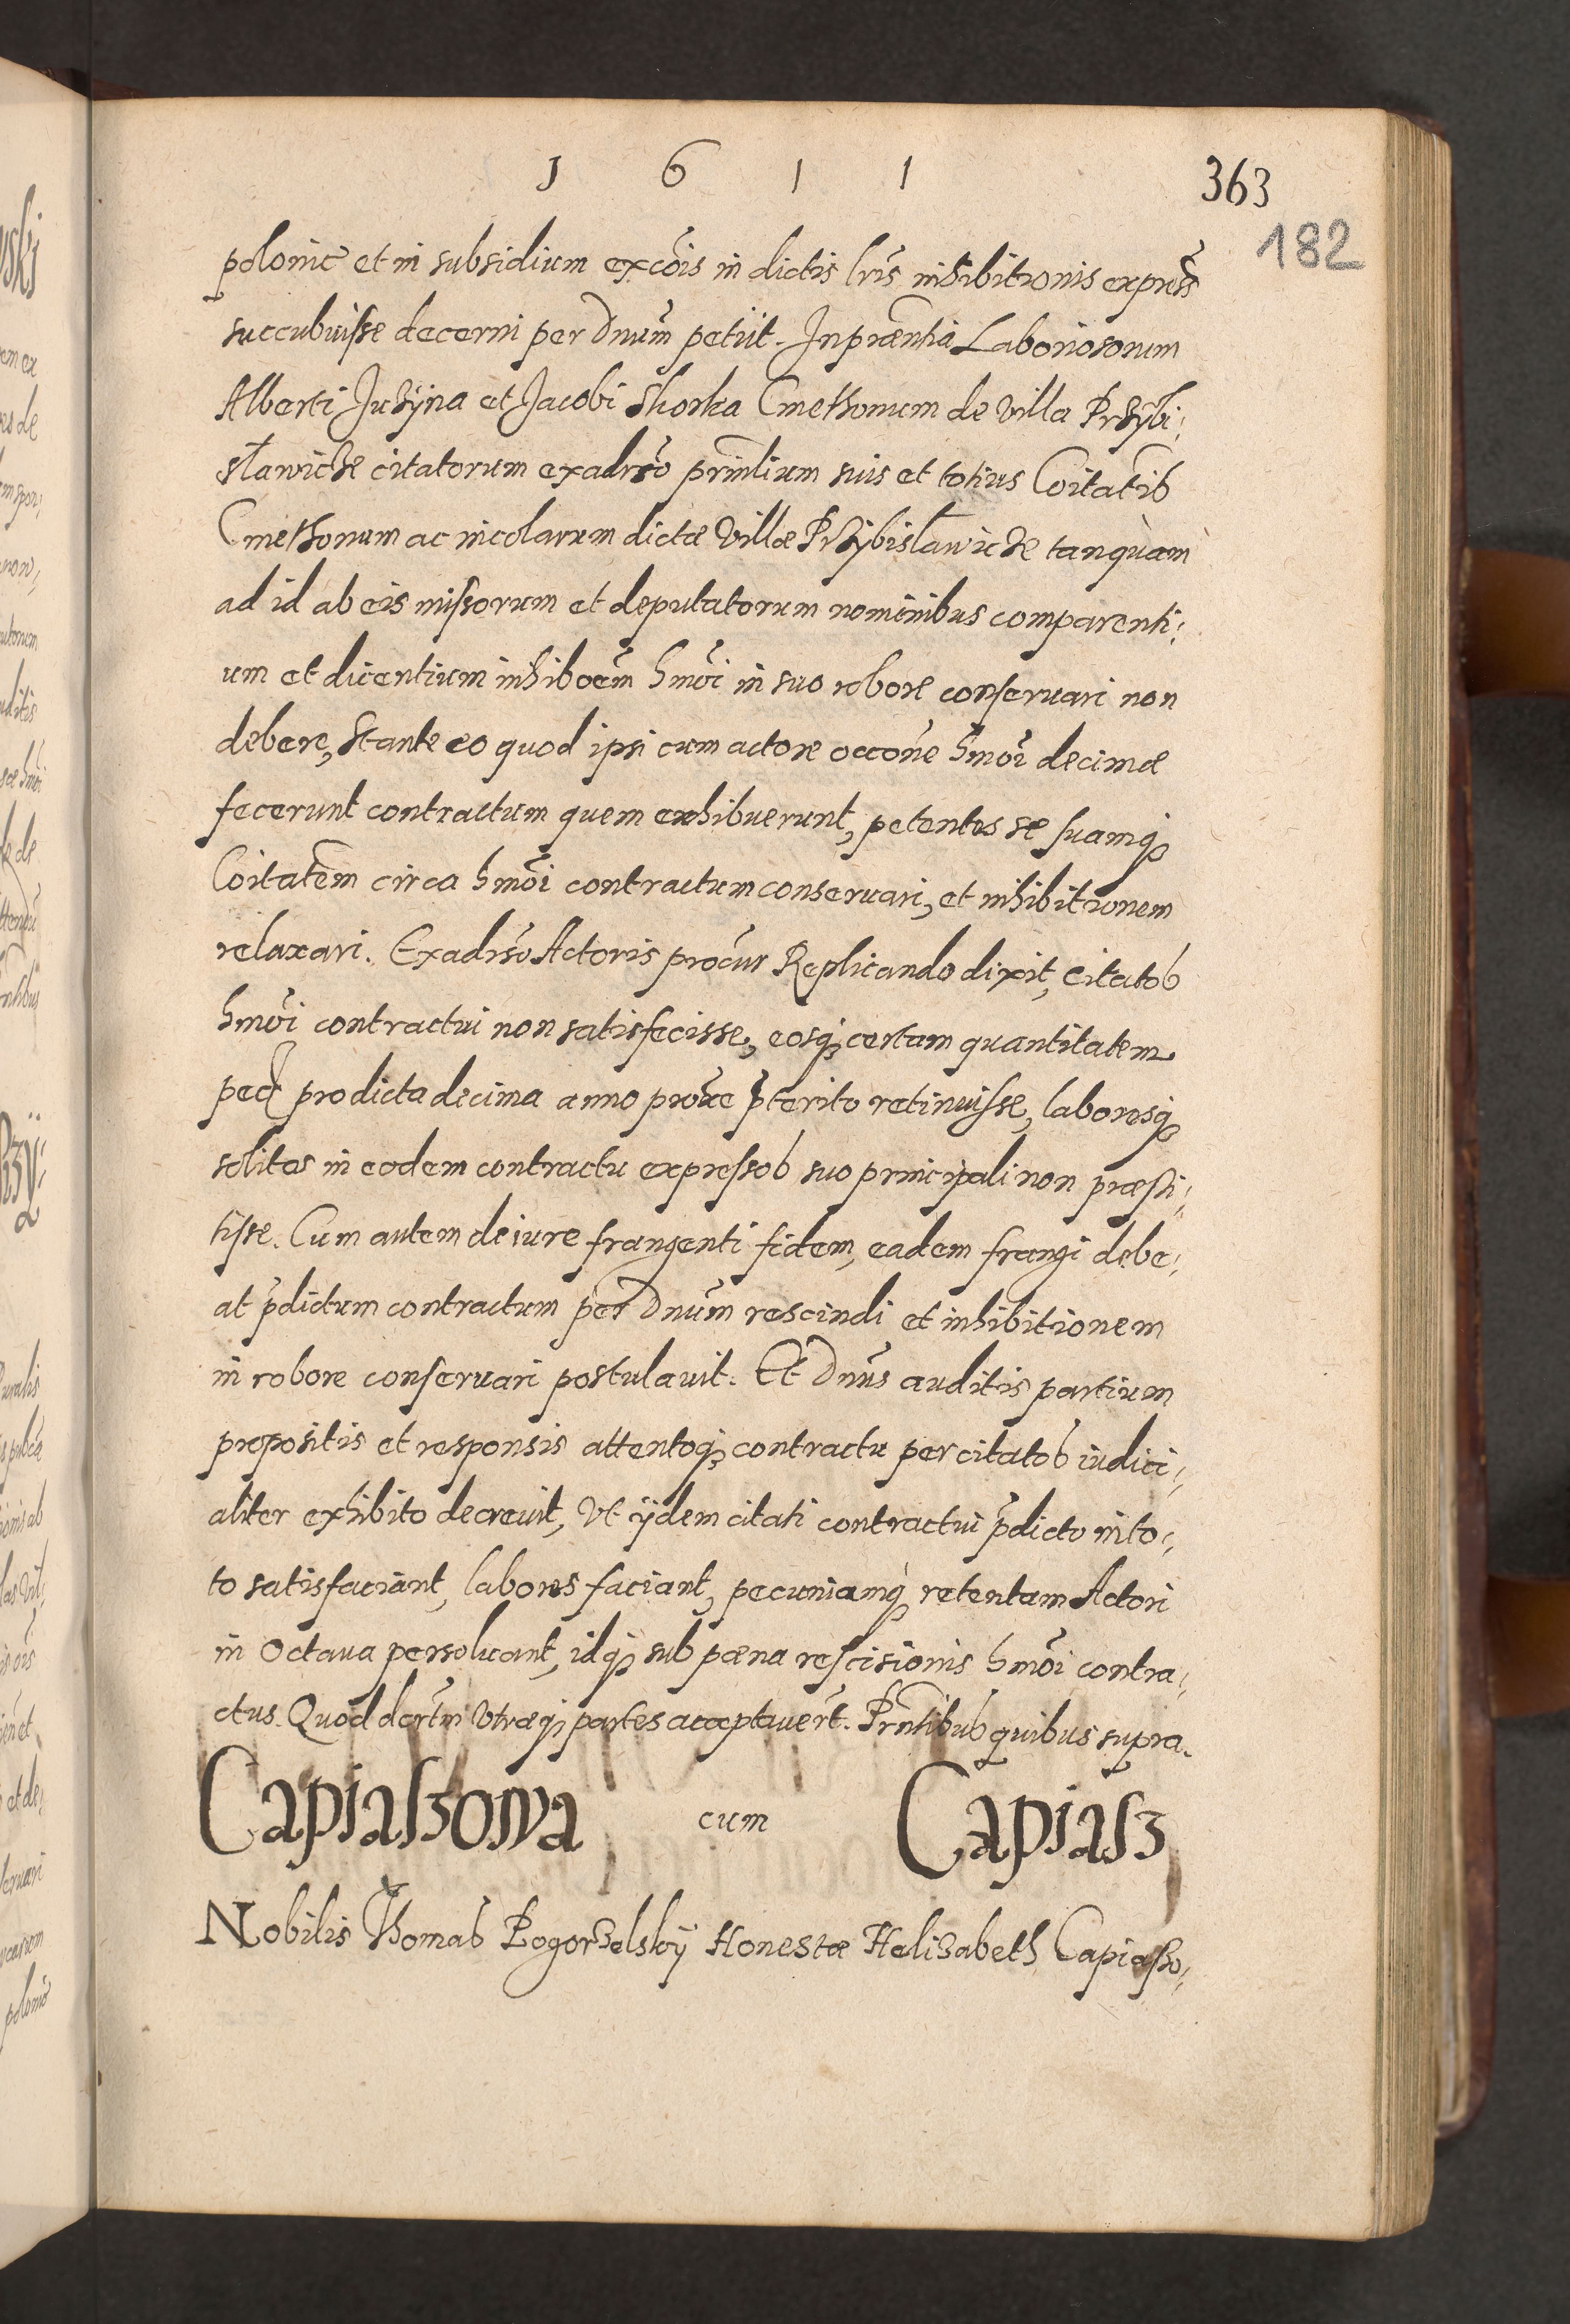 1 6 1 1
363
182
polonic̃ et in subsidium exco͂is in dictis lr͂is inhibitionis expreſs̃
succubuiſse decerni per Dnu͂m petiit. In præntia Laboriosorum
Alberti Juzÿna et Jacobi Skorka Cmethonum de Villa Przÿbi⸗
sławicze citatorum exadr̃so prin͂lium suis et totius Co͂itatis
Cmethonum ac incolarum dictæ Villæ Przÿbisławicze tanquàm
ad id ab eis miſsorum et deputatorum nominibus comparenti⸗
um et dicentium inhibo͂em hmo͂i in suo robore conſeruari non
debere, Stante eo quod ipsi cum actore occo͂ne hmo͂i decimæ
fecerunt contractum quem exhibuerunt, petentes se suamq́ꝫ
Co͂itatem circa hmo͂i contractum conseruari, et inhibitionem
relaxari. Exadr̃so Actoris procur̃ Replicando dixit, citatos
hmo͂i contractui non satisfecisse, eosq́ꝫ certam quantitatem
pec̃ pro dicta decima anno prox̃e p̃terito retinuiſse, laboresq́ꝫ
solitos in eodem contractu expreſsos suo principali non præsti⸗
tiſse. Cum autem de iure frangenti fidem, eadem frangi debe⸗
at p̃dictum contractum per Dnu͂m rescindi et inhibitionem
in robore conſeruari postulauit. Et Dnu͂s auditis partium
propositis et responsis attentoq́ꝫ contractu per citatos iudici⸗
aliter exhibito decreuit, Vt ijdem citati contractui p̃dicto in to⸗
to satisfaciant, labores faciant, pecuniamq́ꝫ retentam Actori
in Octaua persoluant, idq́ꝫ sub pæna reſcisionis hmo͂i contra⸗
ctus. Quod dcrt͂m Vtræq́ꝫ partes acceptauer̃t. Prñtibus quibus supra.
Capiaſzowa cum Capiaſz
Nobilis Thomas Pogorzelskÿ Honestæ Helizabeth Capiaſzo⸗